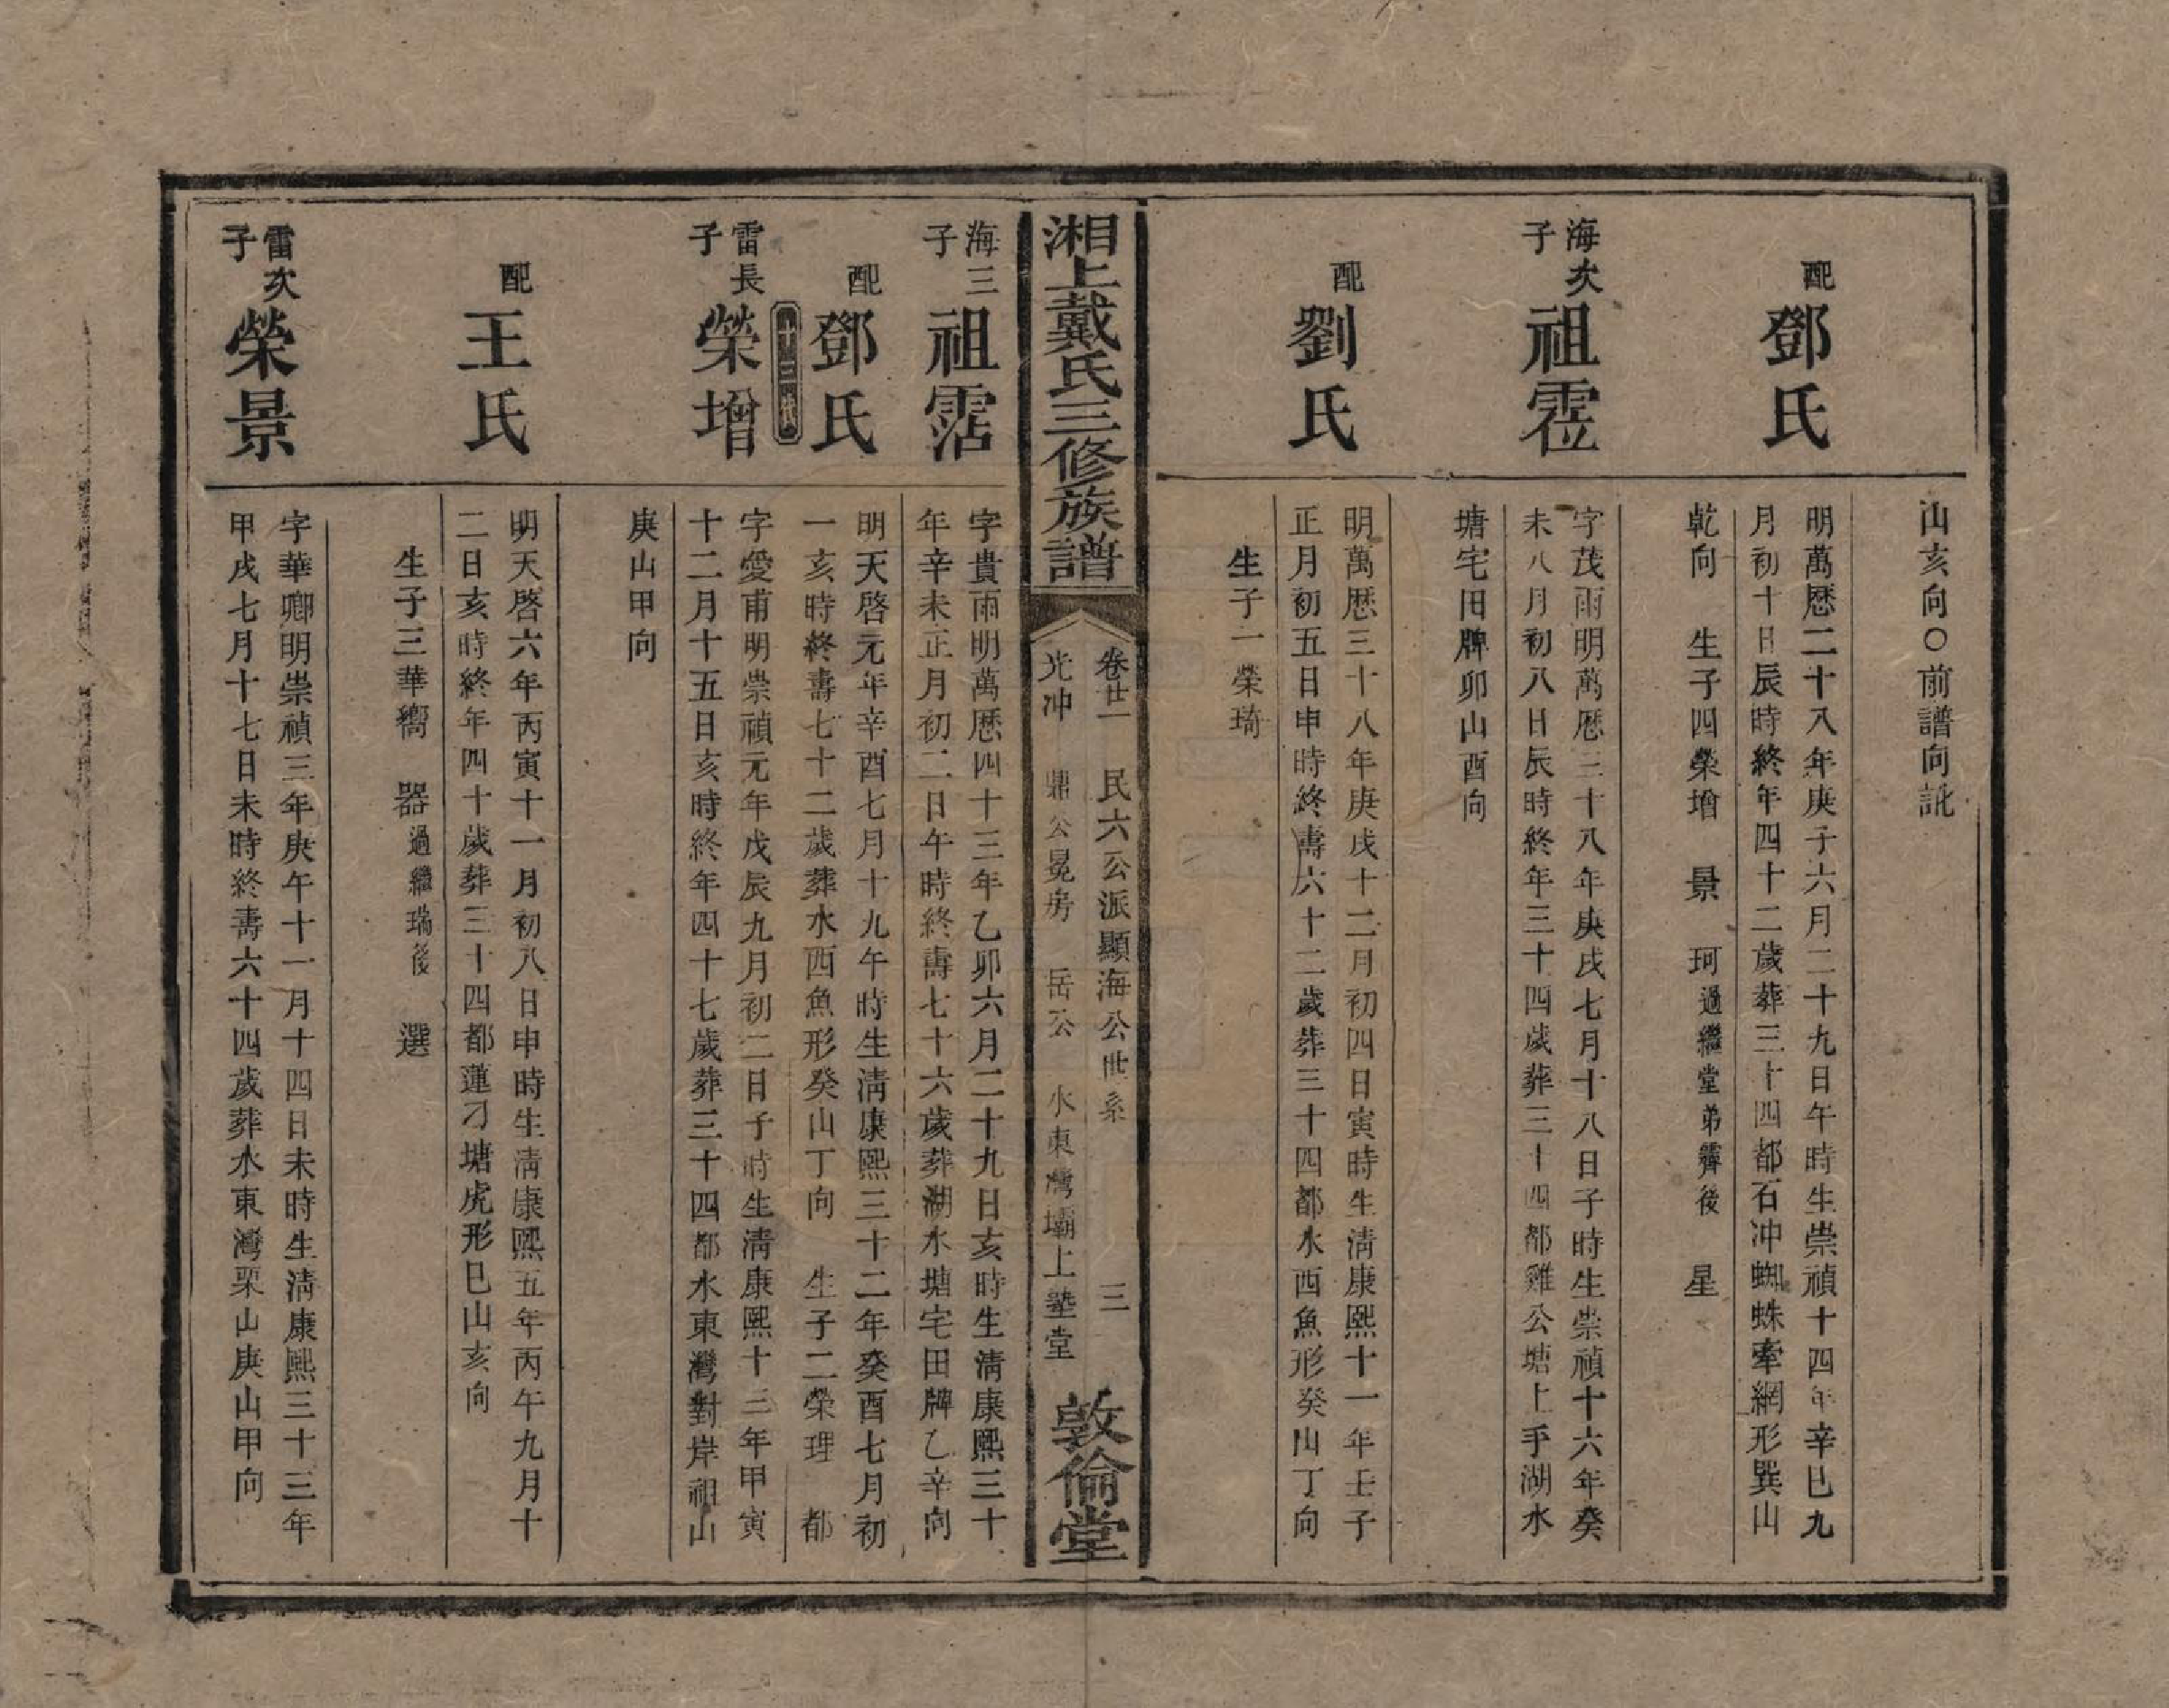 山亥向○前譜向訛
配
鄧氏
明萬歷二十八年庚子六月二十九日午時生崇禎十四年辛巳九
月初十日辰時終年四十二歲葬三十四都石冲蜘蛛牽網形巽山
乾向　生子四榮增　景　珂過繼堂弟霽後　星
海次
子
祖霑
字茂雨明萬歷三十八年庚戌七月十八日子時生崇禎十六年癸
未八月初八日辰時終年三十四歲葬三十四都雞公塘上手湖水
塘宅田牌卯山酉向
配
劉氏
明萬歷三十八年庚戌十二月初四日寅時生清康熙十一年壬子
正月初五日申時終壽六十二歲葬三十四都水西魚形癸山丁向
生子一榮琦
湘上戴氏三修族譜
卷廿一　民六公派顯海公世系　三
光冲　鼎公冕房　岳公　水東灣壩上塾堂
敦倫堂
海三
子
祖霑
字貴雨明萬歷四十三年乙卯六月二十九日亥時生清康熙三十
年辛未正月初二日午時終壽七十六歲葬湖水塘宅田牌乙辛向
配
鄧氏
明天啓元年辛酉七月十九午時生清康熙三十二年癸酉七月初
一亥時終壽七十二歲葬水西魚形癸山丁向　生子二榮理　都
雷長
子
榮增
字愛甫明崇禎元年戊辰九月初二日子時生清康熙十三年甲寅
十二月十五日亥時終年四十七歲葬三十四都水東灣對岸祖山
庚山甲向
配
王氏
明天啓六年丙寅十一月初八日申時生清康熙五年丙午九月十
二日亥時終年四十歲葬三十四都蓮刁塘虎形巳山亥向
生子三華嚮　器過繼瑞後　選
雷次
子
榮景
字華卿明崇禎三年庚午十一月十四日未時生清康熙三十三年
甲戌七月十七日未時終壽六十四歲葬水東灣栗山庚山甲向